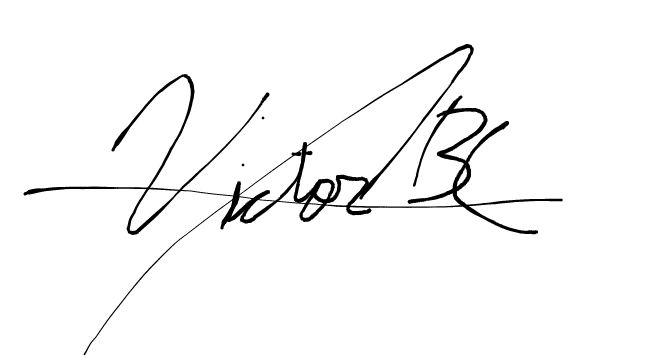 Victor BC